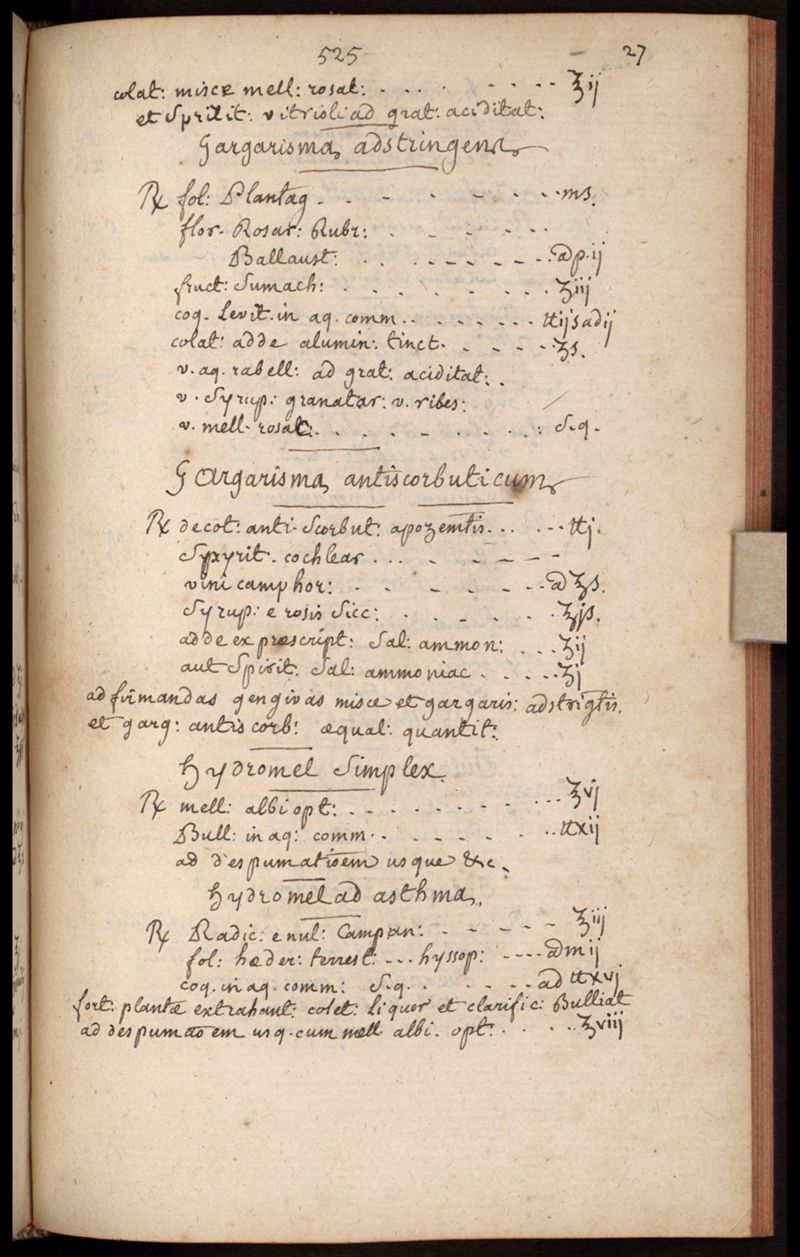 525 27
colat: misce mell: rosat: . . . . - - . . . ℥ij
et Spirit: vitrioli ad grat: aciditat:
Gargarisma adstringens
℞ fol: Plantag - - - - - - . . ms.
flor. Rosar: Rubr: . - - - . .
Ballaust: . . . - - - - - . āā p. ij
fruct: Sumach: . . . . . - . . . ʒiij
coq. levit. in aq. comm . . . . . . . . ℔ijs ad ij
colat: adde alumin: tinct. . - - - . . ʒs.
v. aq. rabell: ad grat: aciditat: .
v. Syrup: granator: v. ribes: /
v. mell. rosat: . . . . - . . . . : S.q.
Gargarisma antiscorbuticum
℞ decot: anti-Scorbut: apozemtis . . . - . . ℔j.
Spyrit. cochlear . . . . - - - -
vini camphor: . . - - - - - . āā ℥s.
Syrup: e rosis Sicc: . . - . - . . ℥js.
adde ex præscript: Sal: ammon: . . . ʒij
aut Spirit: Sal: ammoniac . . . . . ʒj
ad firmandas gengivas misce et gargaris: adstrigtis.
et garg: antiscorb: æqual: quantit:
Hydromel Simplex.
℞ mell: albi opt: . - - - - - - - . . . ℥vj
Bull: in aq: comm . . - - - - - . . ℔xij
ad despumatioem usque &c.
Hydromel ad asthma.
℞ Radic: enul: Campan: . - - - - - ℥iij
fol: hæder: terrest: . . . hyssop: - - - - āā mij
coq. in aq. comm: S.q. . - - - - . ad ℔xvj
fort: plantæ extrahant: colet: liquor et clarific: Bulliat
ad despumatoem usq. cum mell. albi. opt: . . . . . ℥viij